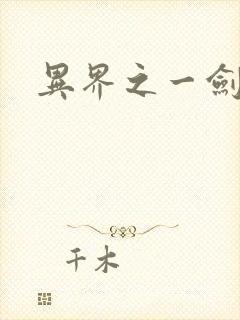 異界之一劍
千木